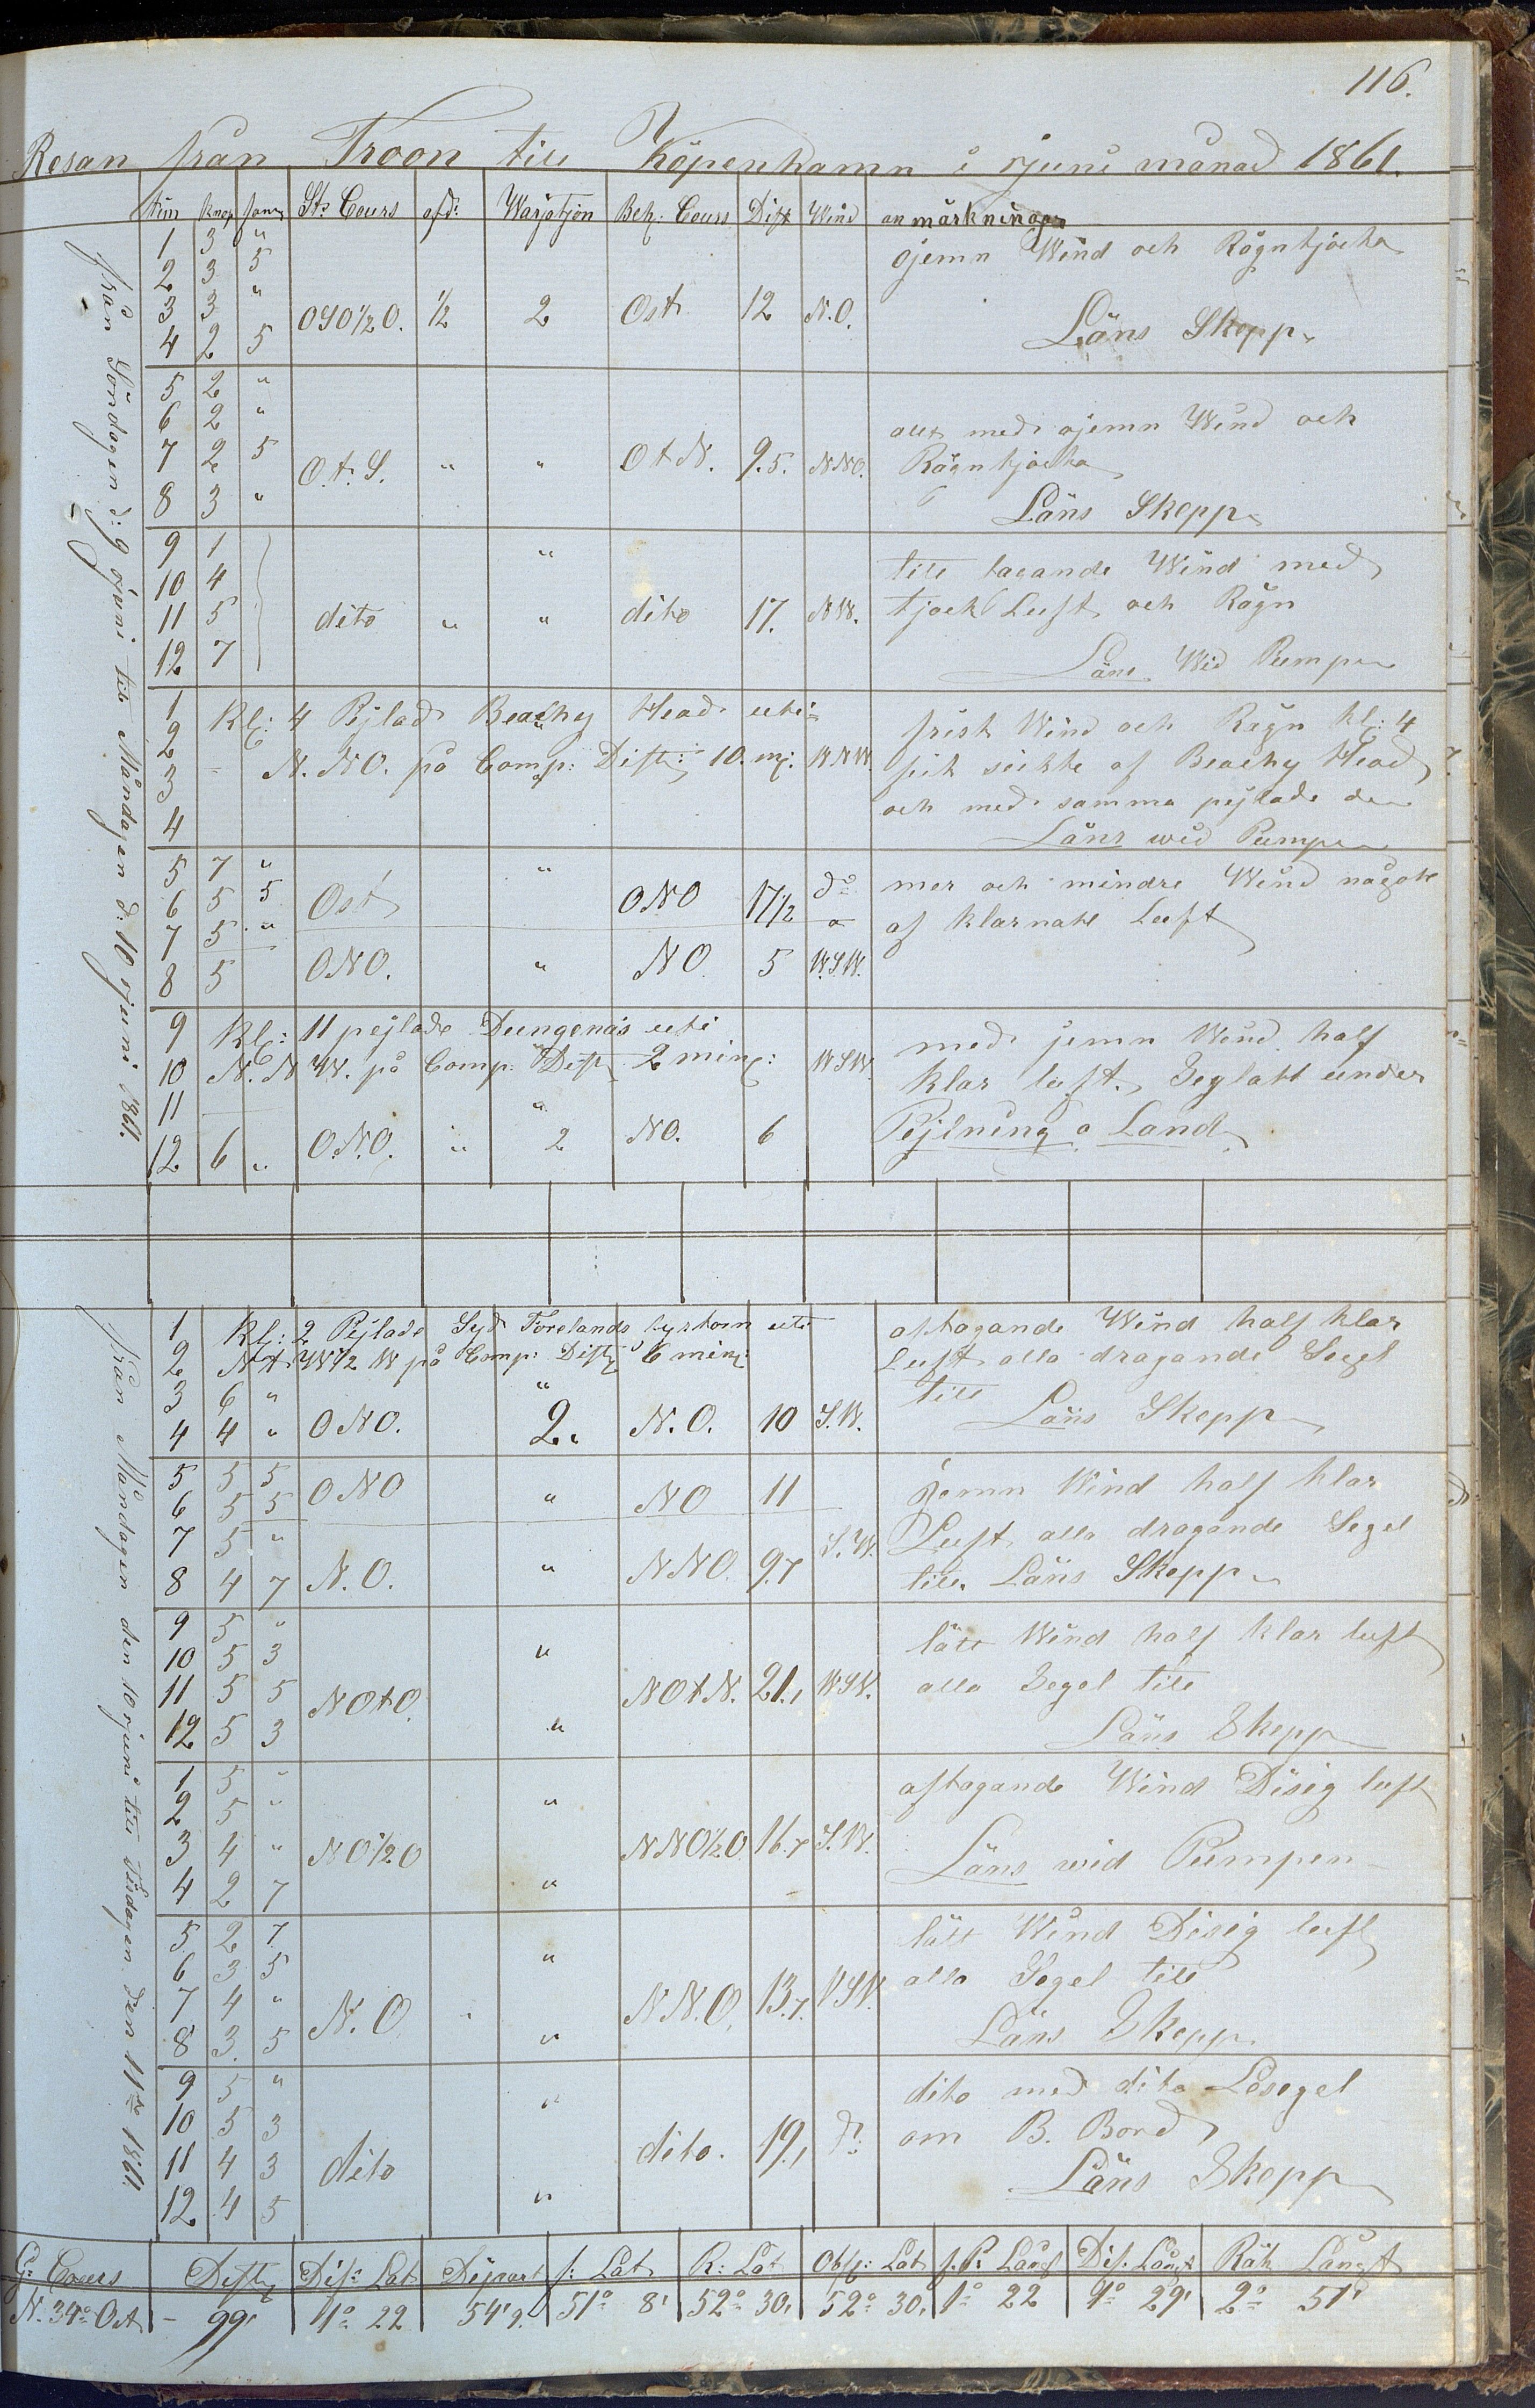 116.
Resan från Troon till Köpenhamn i Juni månad 1861.
Tim Knop famn St: Cours afd: Warjatjon Beh: Cours Dist Wind anmärkningar
från Söndagen d: 9 Juni till Måndagen d: 10 Juni 1861.
1 3 "
ojemn Wind och Rägntjocka
2 3 5
3 3 " OSO½O. ½ 2 Ost 12 N.O.
Läns Skepp
4 2 5
5 2 "
6 2 "
med ojemn Wind och
7 2 5 O.t.S. " " OtN. 9.5. NNO.
Rägntjocka
8 3 "
Läns Skepp
9 1 "
till tagande Wind med
10 4
11 5 dito " " dito 17. NW.
tjock Luft och Rägn
12 7
Läns Wid Pumpen
1
Kl: 4 Pejlad Beachy Head uti
frisk Wind och Rägn kl: 4
2
N.NO. på Comp: Dist: 10. mj: WNW.
fik sickte af Beachy Head
3
och med samma pejlade den
4
Läns wid Pumpen
5 7 " "
mer och mindre Wind något
6 5 5 Ost ONO 17½ do
7 5 "
af klarnatt Luft
8 5 ONO. " NO 5 W.S.W.
9
Kl: 11 pejlade Dungenäs uti
med jemn Wind half
10
N.NW. på Comp. Dist 2 minz: WSW.
klar luft. Seglatt under
11 "
12 6 " O.N.O. " 2 NO. 6
Pejlning o Land
från Måndagen den 10 Juni till Tisdagen den 11te 1861.
1
Kl: 2 Pejlade Syd Forelands fyrtorn uti
aftagande Wind half klar
2
Nt.W½W på Comp: Dist 6 minz:
Luft alla dragande Segel
3 6 " "
till
4 4 " ONO. 2. N.O. 10 S.W.
Läns Skepp
5 5 5
6 5 5 ONO " NO 11
Jemn Wind half klar
7 5 "
Luft alla dragande Segel
8 4 7 N.O. " NNO. 9.7 S.W.
till. Läns Skepp
9 5 "
10 5 3 "
lätt Wind half klar luft
11 5 5 NOtO. NOtN. 21.1 WSW.
alla Segel till
12 5 3 "
Läns Skepp
1 5 "
aftagande Wind Disig luft
2 5 " "
3 4 " NO½O NNO½O. 16.7 S.W.
4 2 7 "
Läns wid Pumpen
5 2 7
lätt Wind Disig luft
6 3 5 "
7 4 " N.O. N.N.O. 13.7. WSW.
alla Segel till
8 3 5 "
Läns Skepp
9 5 " "
dito med dito Läsegel
10 5 3
om B. Bord
11 4 3 dito dito. 19.1 do:
12 4 5 "
Läns Skepp
G: Cours Dist Dif: Lat Depart f: Lat R: Lat Obs: Lat f.P: Långt Dif. Långt Räk Långt
N. 34° Ost - 99' 1° 22 54'9. 51° 8' 52° 30, 52° 30, 1° 22 1° 29' 2° 51'